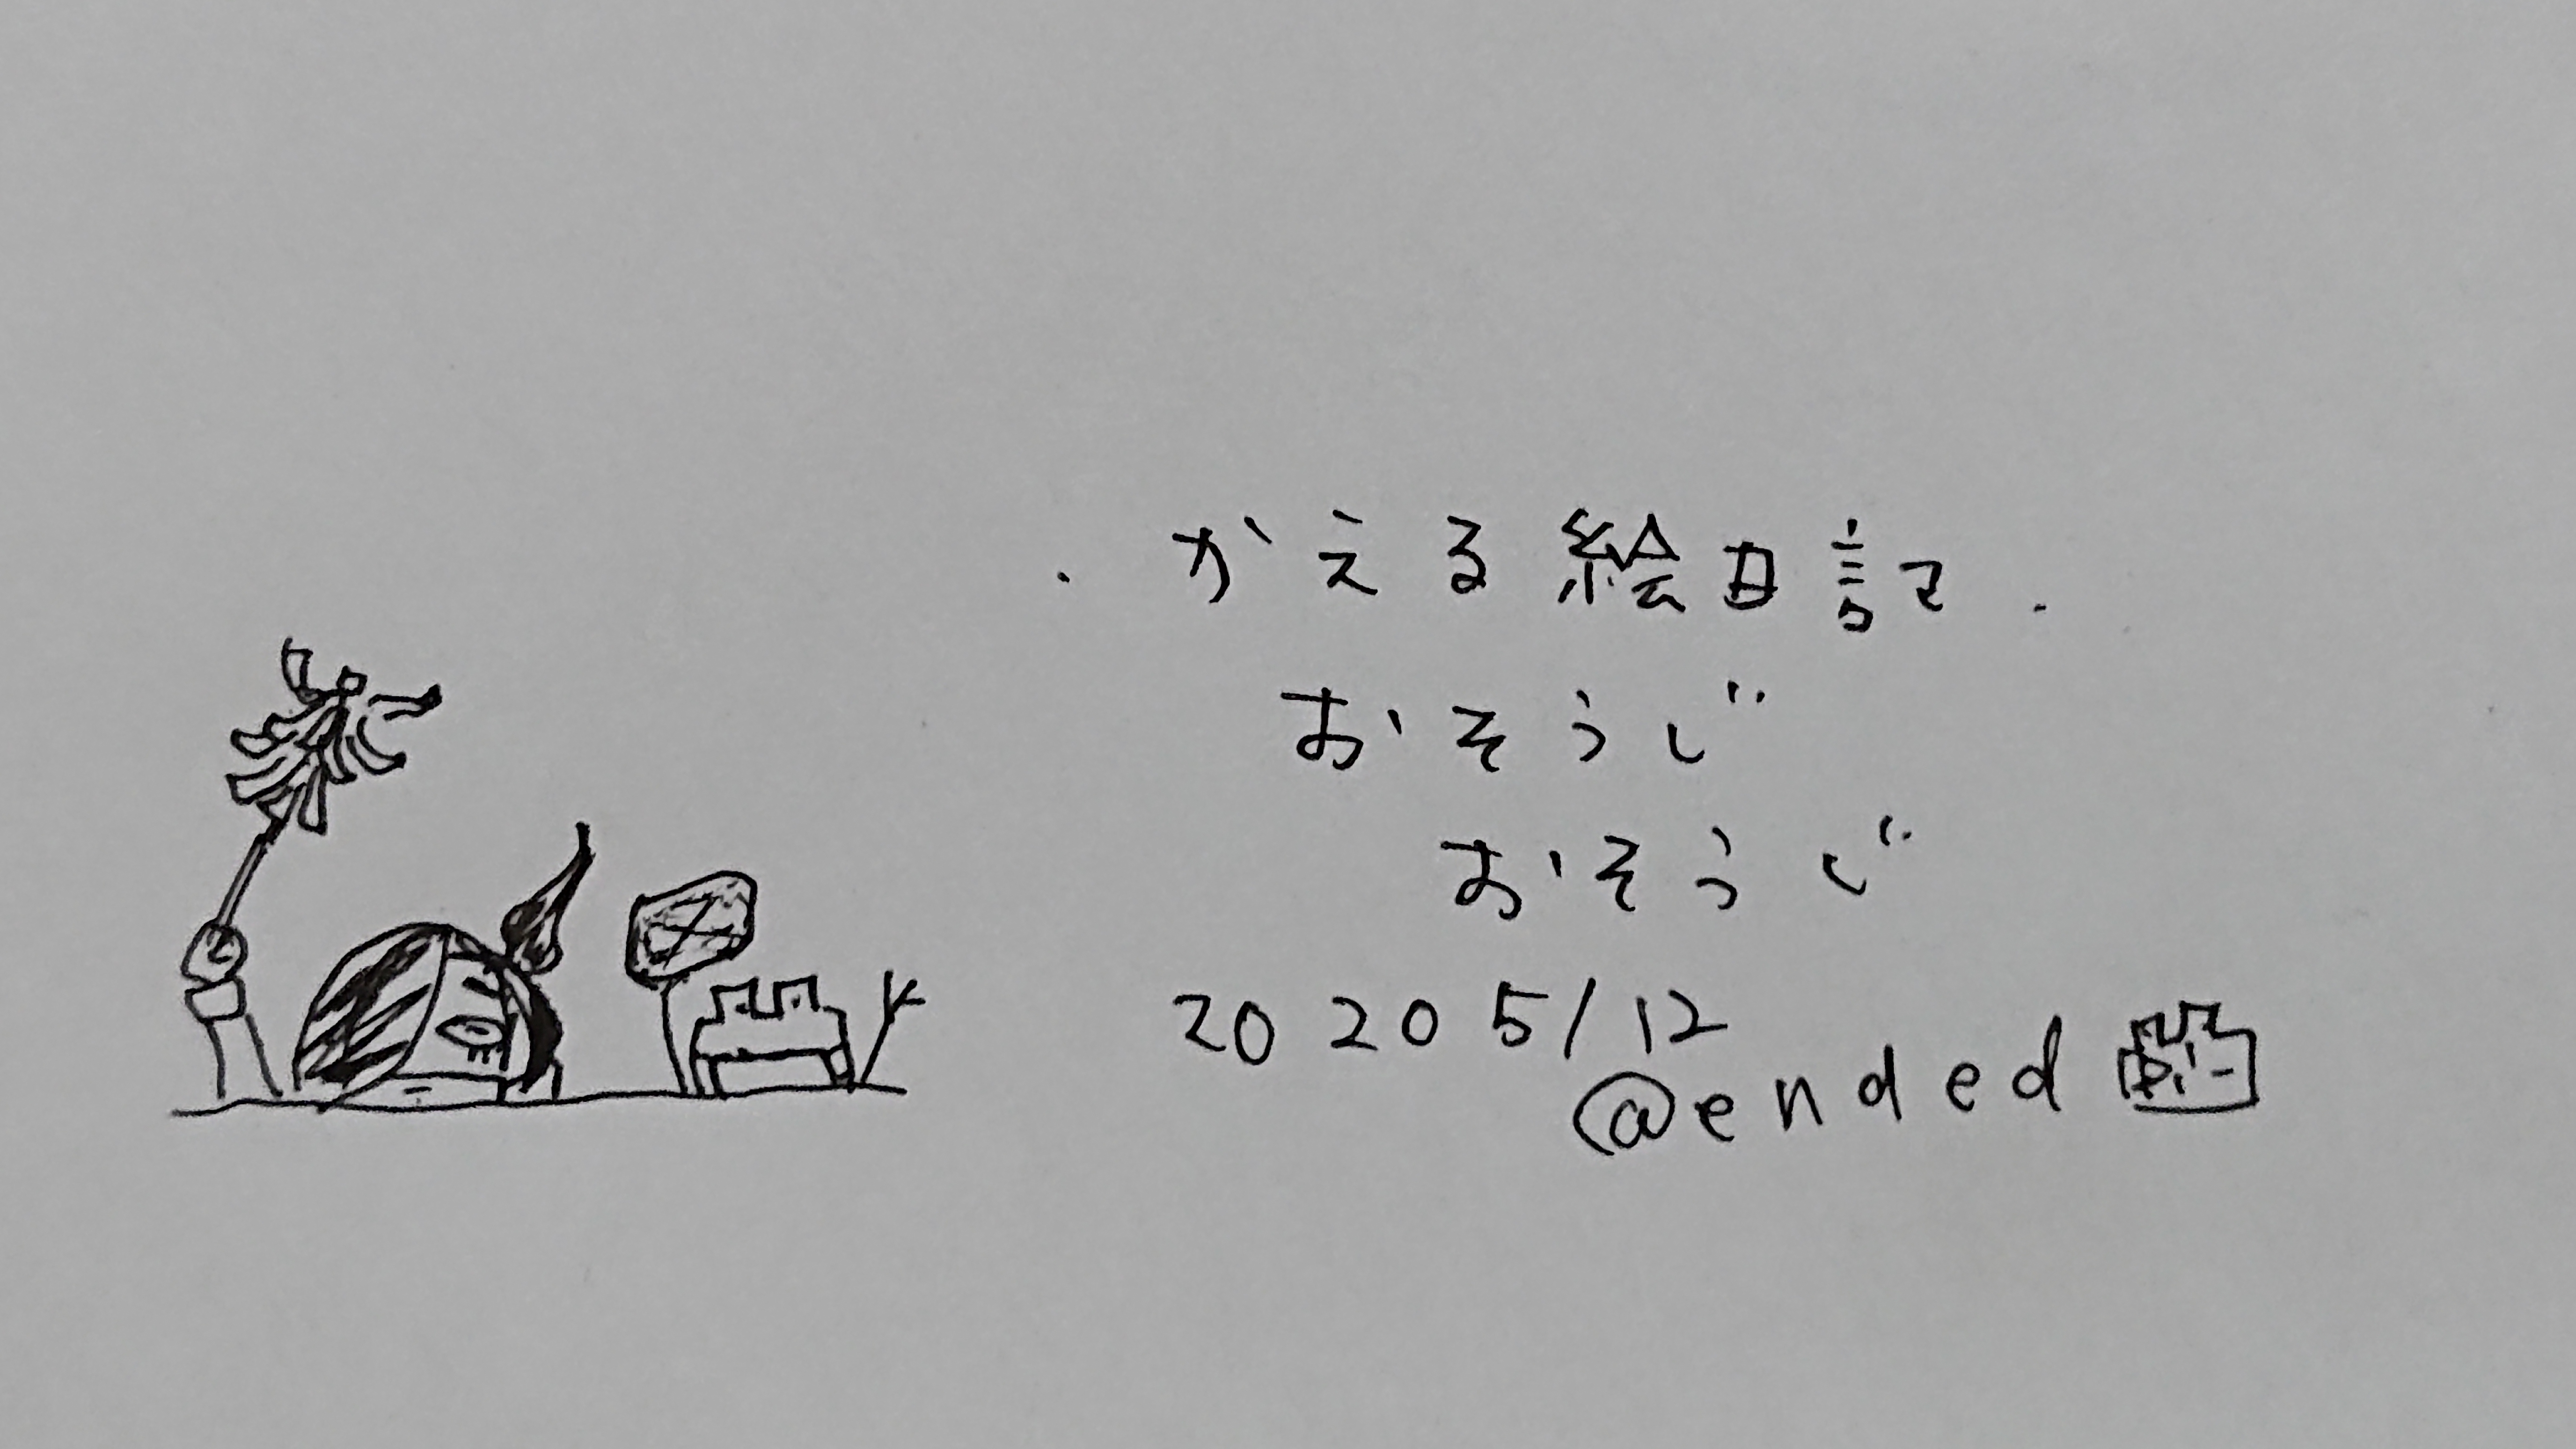 ・かえる絵日記・
おそうじ
おそうじ
2020 5/12
@ended